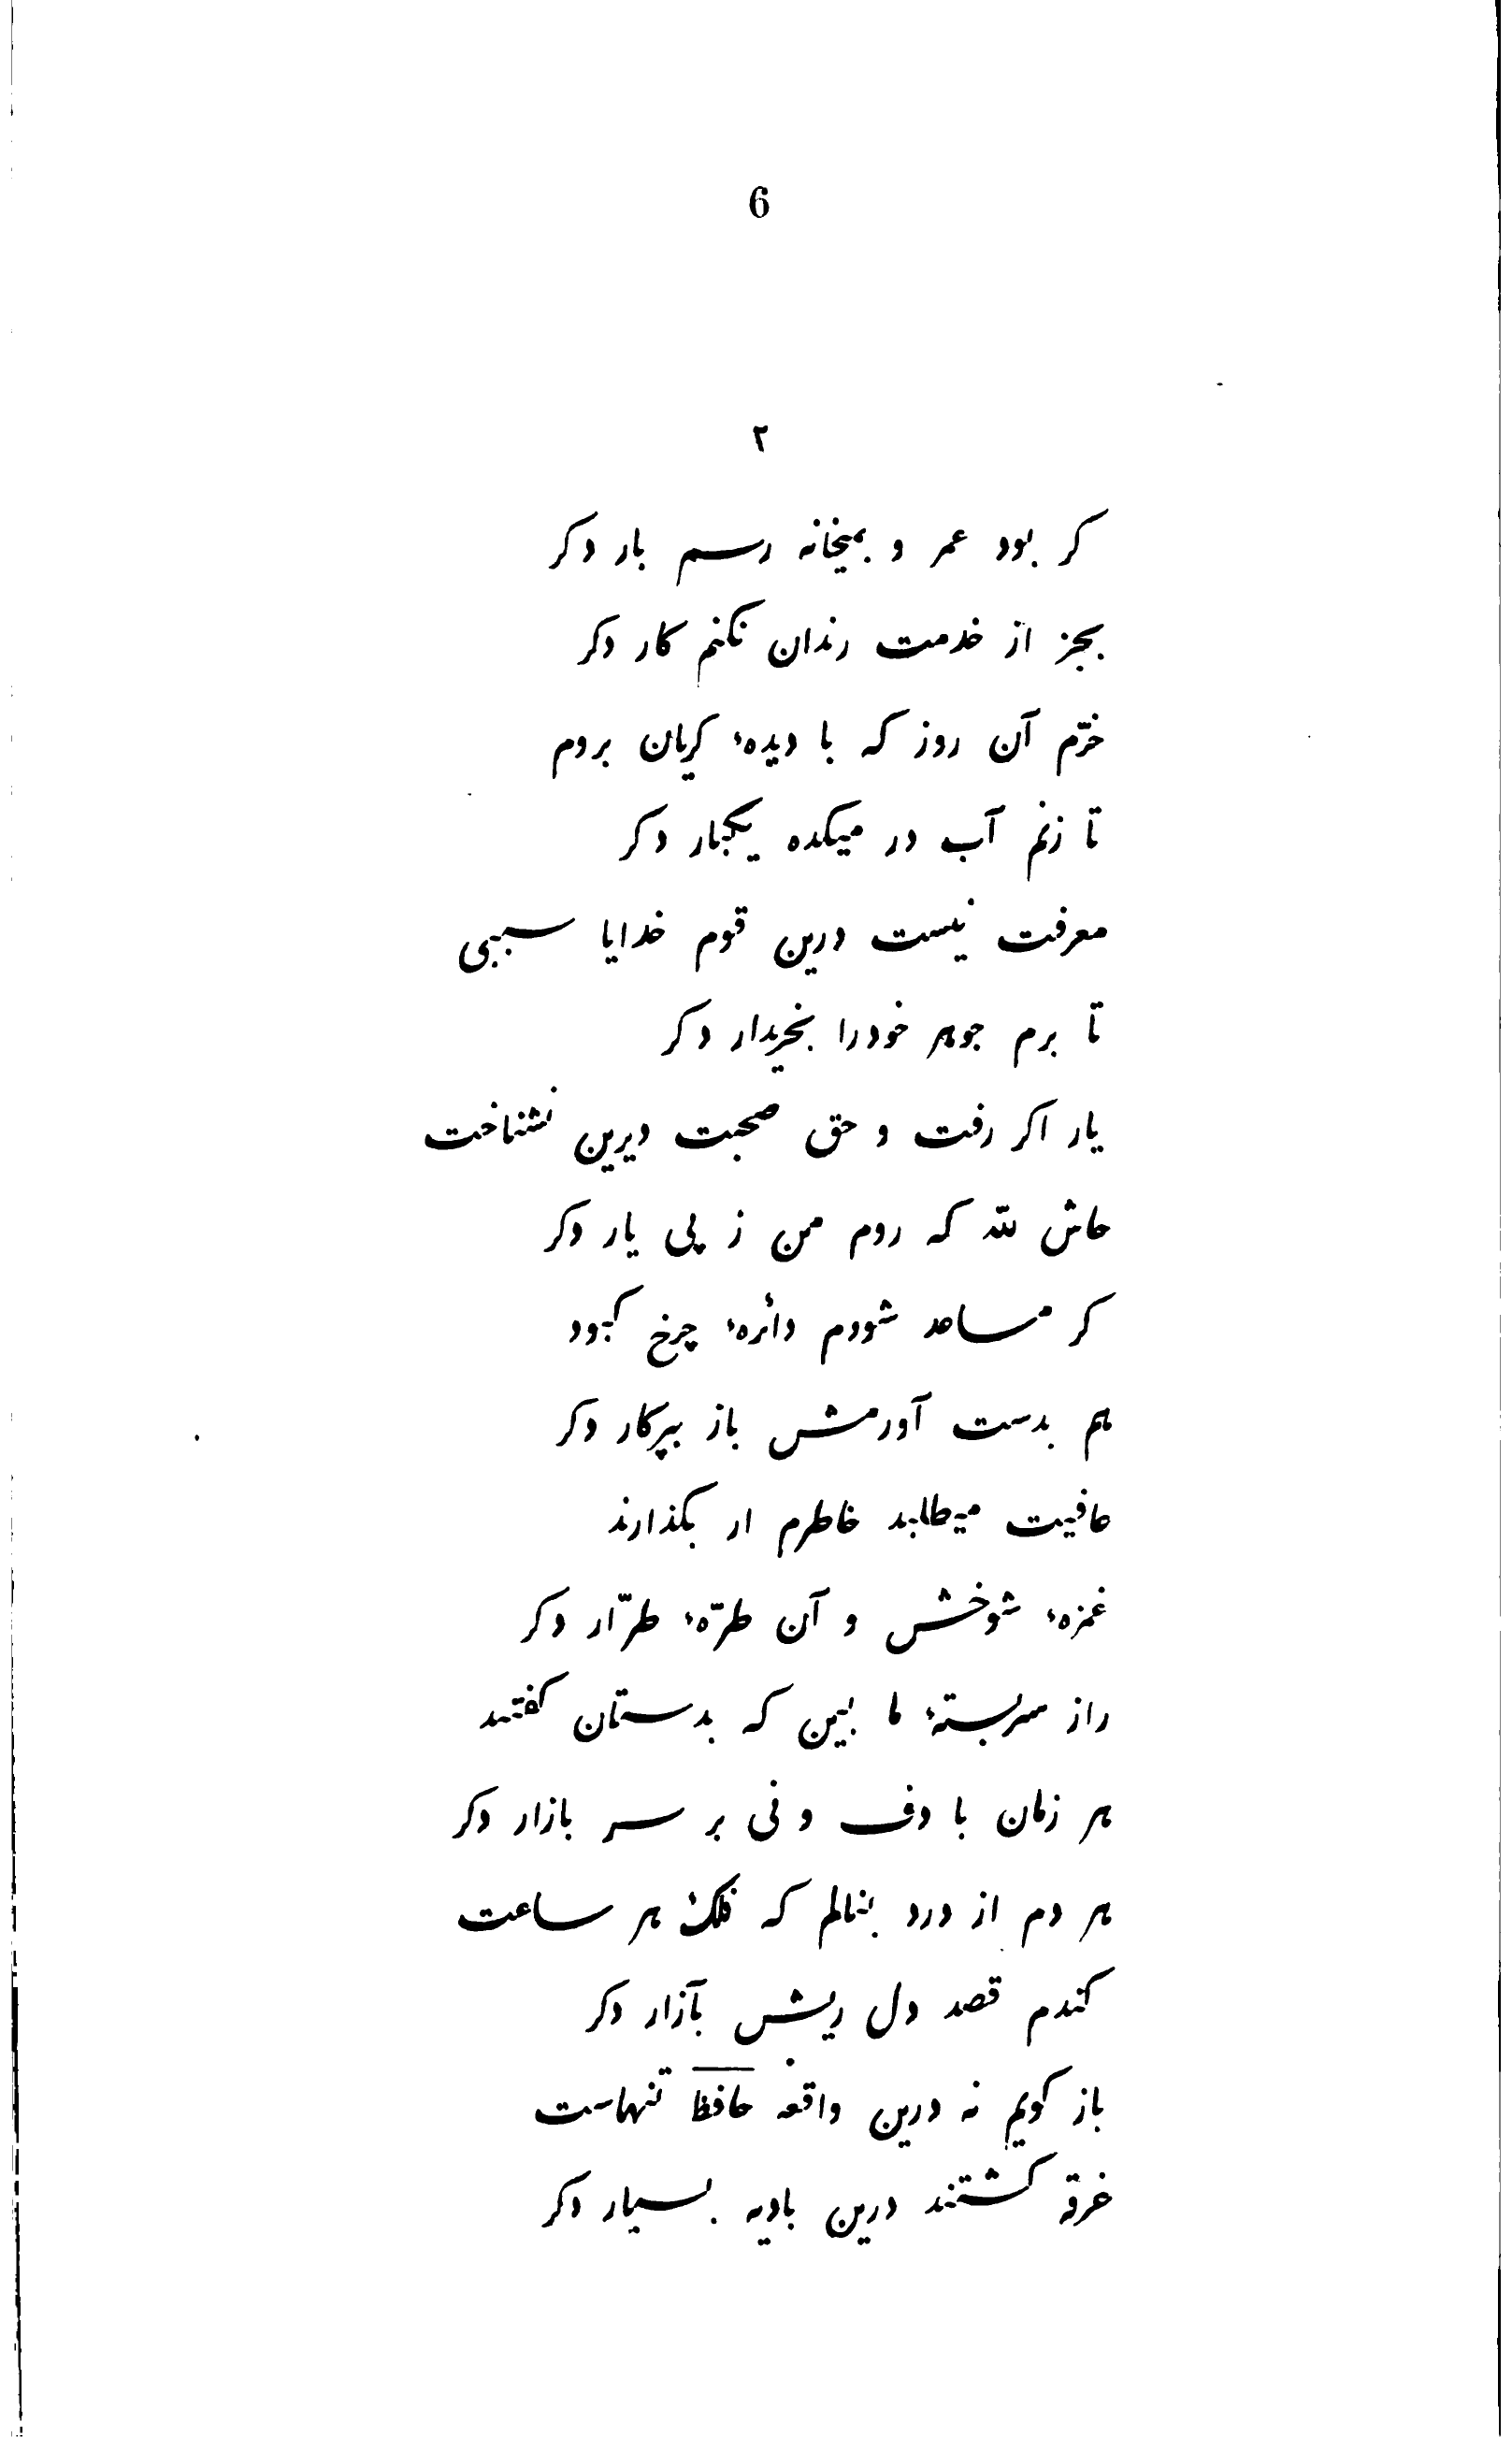 6
۲
کر بود عمر و بمیخانه رسم بار دکر
بجز از خدمت رندان نکنم کار دکر
خرّم آن روز که با دیدهٔ کریان بروم
تا زنم آب در میکده یکبار دکر
معرفت نیست درین قوم خدایا سببی
تا برم جوهر خودرا بخریدار دکر
یار اکر رفت و حق صحبت دیرین نشناخت
حاش لله که روم من ز پی یار دکر
کر مساعد شودم دائرهٔ چرخ کبود
هم بدست آورمش باز بپرکار دکر
عافیت میطلبد خاطرم ار بکذارند
غمزهٔ شوخش و آن طرّهٔ طرّار دکر
راز سربستهٔ ما بین که بدستان کفتند
هر زمان با دف و نی بر سر بازار دکر
هر دم از درد بنالم که فلک هر ساعت
کندم قصد دل ریش بآزار دکر
باز کویم نه درین واقعه حافظ تنهاست
غرقه کشتند درین بادیه بسیار دکر